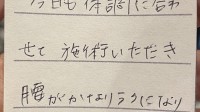 今日も体調に合わ
せて施術いただき
腰がかなりラクになり